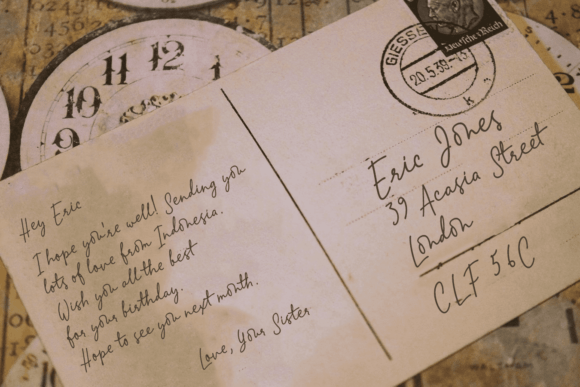 12
11
1
10
9
Deutsches Reich
GIESSE
20.5.39.-13
k
Hey Eric
I hope you're well! Sending you
lots of love from Indonesia.
Wish you all the best
for your birthday.
Hope to see you next month.
Love, Your Sister
Eric Jones
39 Acasia Street
London
CLF 56C
WALTHAM